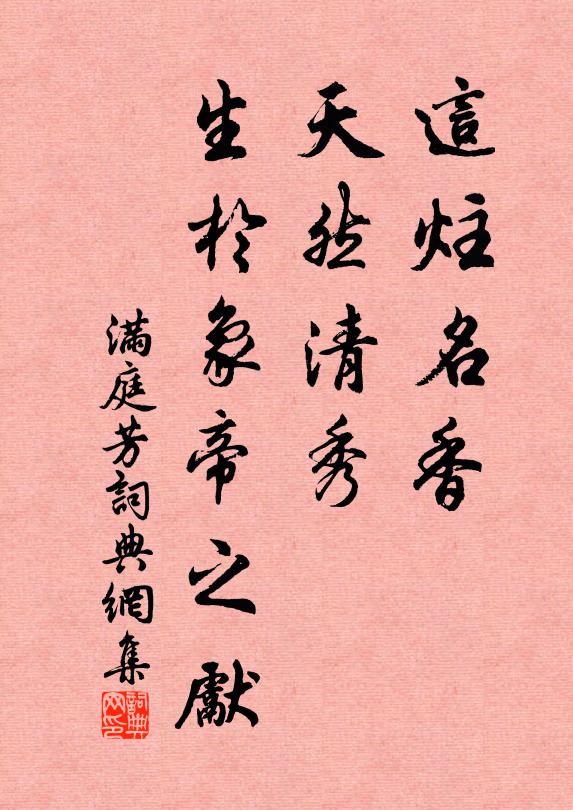 這炷名香
天然清秀
生於象帝之獻
滿庭芳詞典網集
詞典
网印